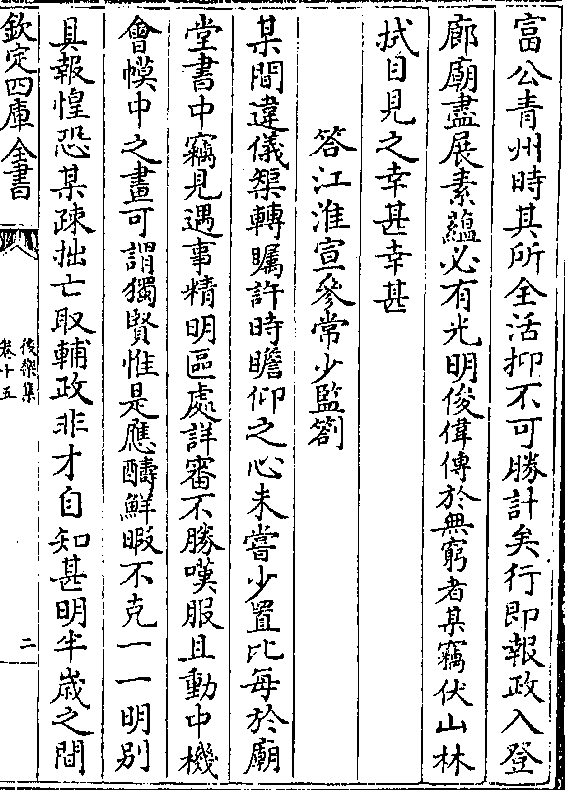 富公青州時其所全活抑不可勝計矣行即報政入登
廊廟盡展素蘊必有光明俊偉傳於無窮者某竊伏山林
拭目見之幸甚幸甚
答江淮宣參常少監劄
某間違儀榘轉矚許時瞻仰之心未嘗少置比每於廟
堂書中竊見遇事精明區處詳審不勝嘆服且動中機
會幙中之畫可謂獨賢惟是應酬鮮暇不克一一明别
具報惶恐某疎拙亡取輔政非才自知甚明半歲之間
欽定四庫全書
後樂集
卷十五
二